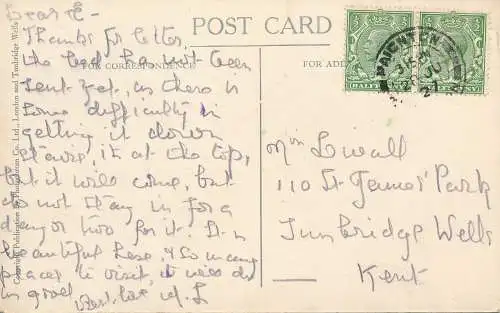 POST CARD
FOR CORRESPONDENCE
FOR AD
Copyright Publication by Photochrom Co., Ltd., London and Tunbridge Wells
HALF
PAIGNTON
Dear E -
Thanks for letter,
the bed has not been
sent yet, as there is
some difficulty in
getting it down
stairs, it's at the top,
but it will come, but
do not stay in for a
day or two for it. It is
beautiful here, & so many
places to visit, it will do
us good.
Best love M. L
Mrs Lwall
110 St James' Park
Tunbridge Wells
Kent